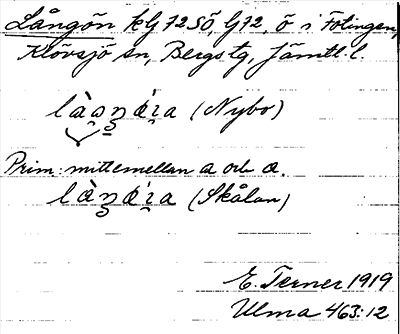 Långön kG 72 SÖ, G72, ö i Fölingen,
Klövsjö sn, Bergs tg, Jämtl. l.
(Nybo)
Prim: mittemellan a och ɑ.
(Skålan)
E. Terner 1919
Ulma 463:12